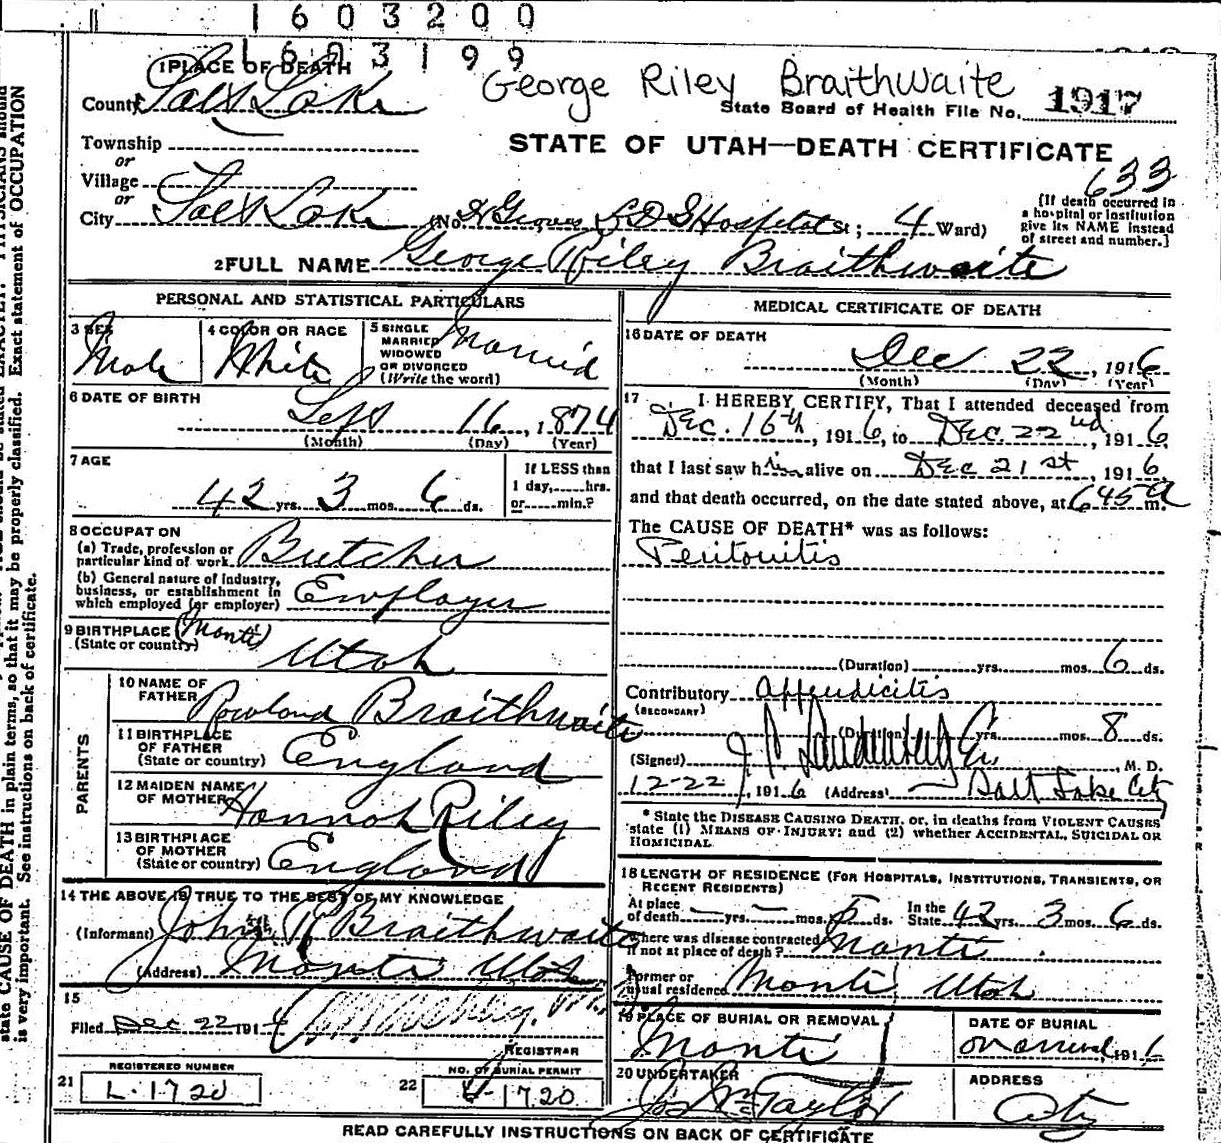 1603200
1603199
1 PLACE OF DEATH
George Riley Braithwaite
County Salt Lake
State Board of Health File No. 1917
Township
STATE OF UTAH—DEATH CERTIFICATE
or
Village
633
or
City Salt Lake (No. Dr Groves L D S Hospital St; 4 Ward)
[If death occurred in
a hospital or institution
give its NAME instead
of street and number.]
2 FULL NAME George Riley Braithwaite
PERSONAL AND STATISTICAL PARTICULARS
3 SEX Male
4 COLOR OR RACE White
5 SINGLE
MARRIED
WIDOWED
OR DIVORCED
(Write the word) Married
6 DATE OF BIRTH
Sept 16, 1874
(Month) (Day) (Year)
7 AGE
42 yrs. 3 mos. 6 ds.
If LESS than
1 day, hrs.
or min.?
8 OCCUPATION
(a) Trade, profession or
particular kind of work Butcher
(b) General nature of Industry,
business, or establishment in
which employed (or employer) Employer
9 BIRTHPLACE (Manti)
(State or country) Utah
PARENTS
10 NAME OF
FATHER Rowland Braithwaite
11 BIRTHPLACE
OF FATHER
(State or country) England
12 MAIDEN NAME
OF MOTHER Hannah Riley
13 BIRTHPLACE
OF MOTHER
(State or country) England
14 THE ABOVE IS TRUE TO THE BEST OF MY KNOWLEDGE
(Informant) John R Braithwaite
(Address) Manti Utah
15
Filed Dec 22 191
REGISTRAR
REGISTERED NUMBER
21 L-1720
NO. OF BURIAL PERMIT
22 1720
MEDICAL CERTIFICATE OF DEATH
16 DATE OF DEATH
Dec 22, 1916
(Month) (Day) (Year)
17 I HEREBY CERTIFY, That I attended deceased from
Dec. 16th, 1916, to Dec. 22nd, 1916
that I last saw him alive on Dec 21st, 1916
and that death occurred, on the date stated above, at 645 a m.
The CAUSE OF DEATH* was as follows:
Peritonitis
(Duration) yrs. mos. 6 ds.
Contributory Appendicitis
(SECONDARY)
(Duration) yrs. mos. 8 ds.
(Signed) M. D.
12-22, 1916 (Address) Salt Lake City
* State the DISEASE CAUSING DEATH, or, in deaths from VIOLENT CAUSES
state (1) MEANS OF INJURY; and (2) whether ACCIDENTAL, SUICIDAL OR
HOMICIDAL.
18 LENGTH OF RESIDENCE (FOR HOSPITALS, INSTITUTIONS, TRANSIENTS, OR
RECENT RESIDENTS)
At place
of death — yrs. — mos. 5 ds.
In the
State 42 yrs. 3 mos. 6 ds.
Where was disease contracted
if not at place of death? Manti
Former or
usual residence Manti Utah
19 PLACE OF BURIAL OR REMOVAL
Manti
DATE OF BURIAL
on arrival, 1916
20 UNDERTAKER
Taylor
ADDRESS
City
READ CAREFULLY INSTRUCTIONS ON BACK OF CERTIFICATE
state CAUSE OF DEATH in plain terms, so that it may be properly classified. Exact statement of OCCUPATION
is very important. See instructions on back of certificate.